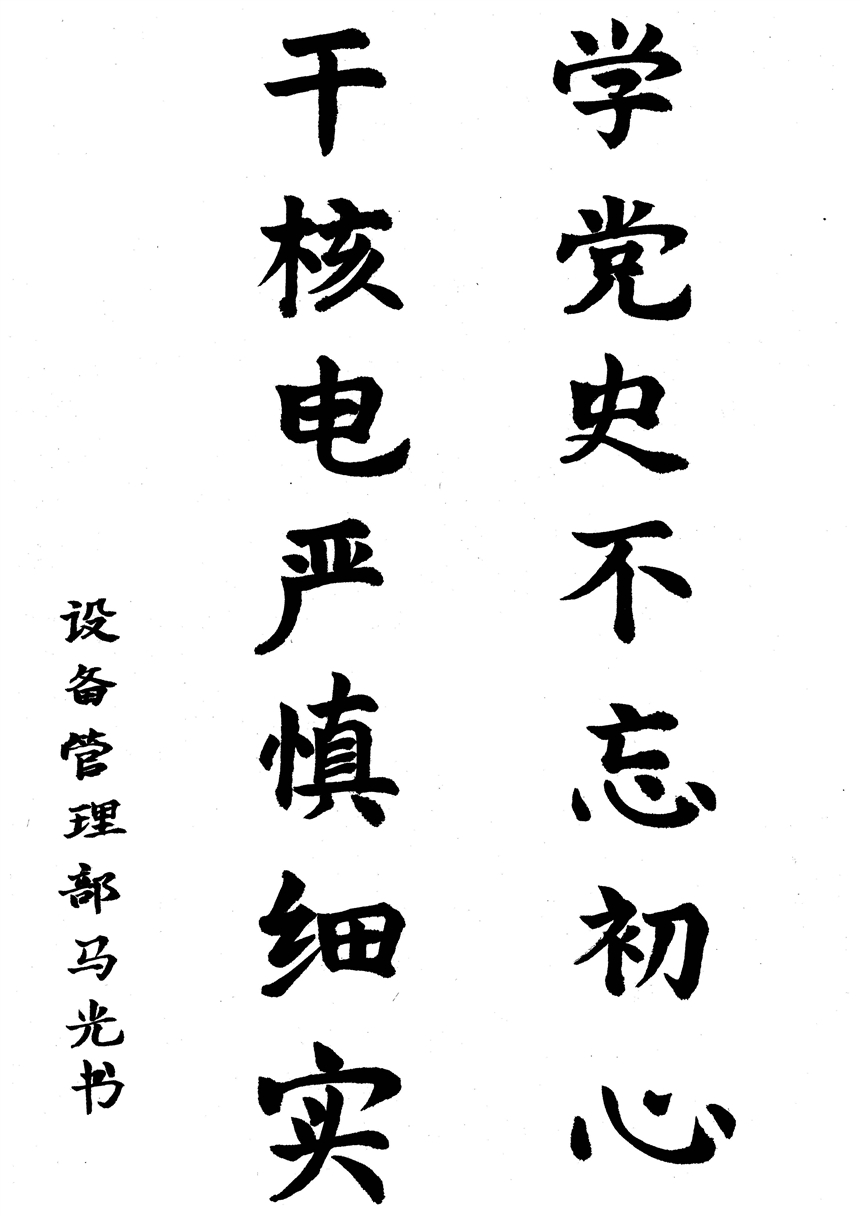 学党史不忘初心
干核电严慎细实
设备管理部马光书